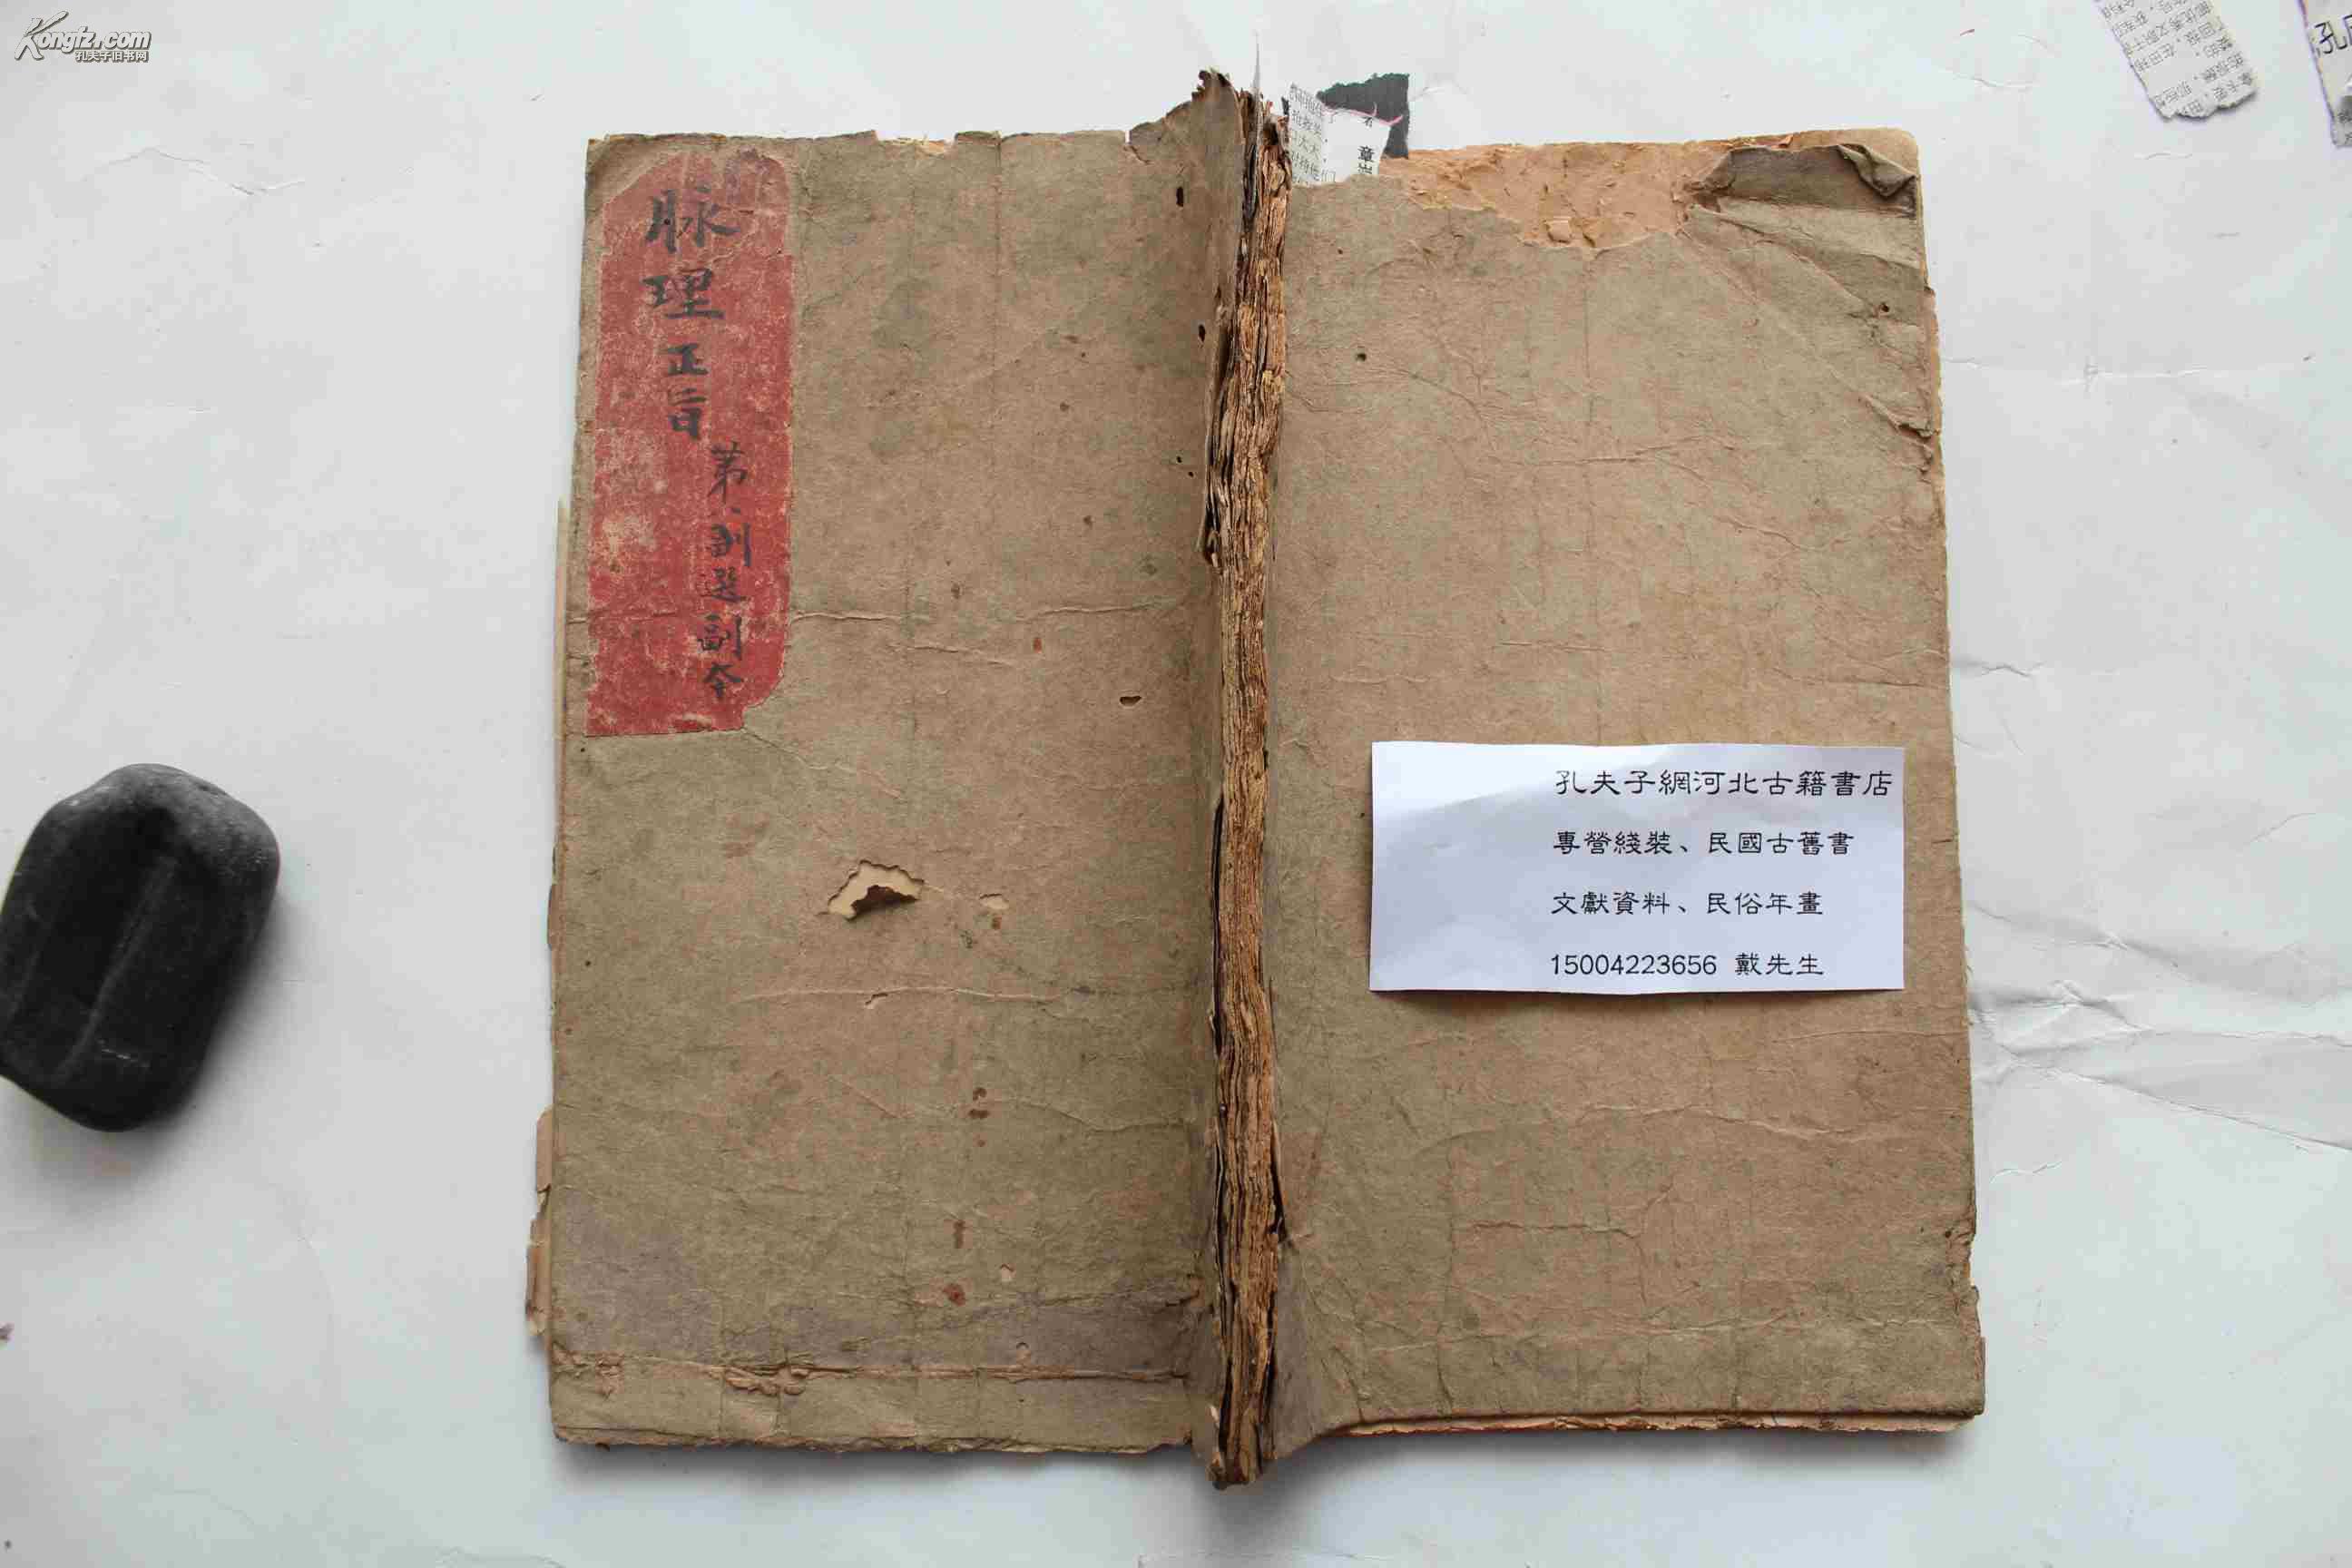 Kongfz.com
孔夫子旧书网
脉理正旨
第
選副本
孔夫子網河北古籍書店
專營綫裝、民國古舊書
文獻資料、民俗年畫
15004223656 戴先生